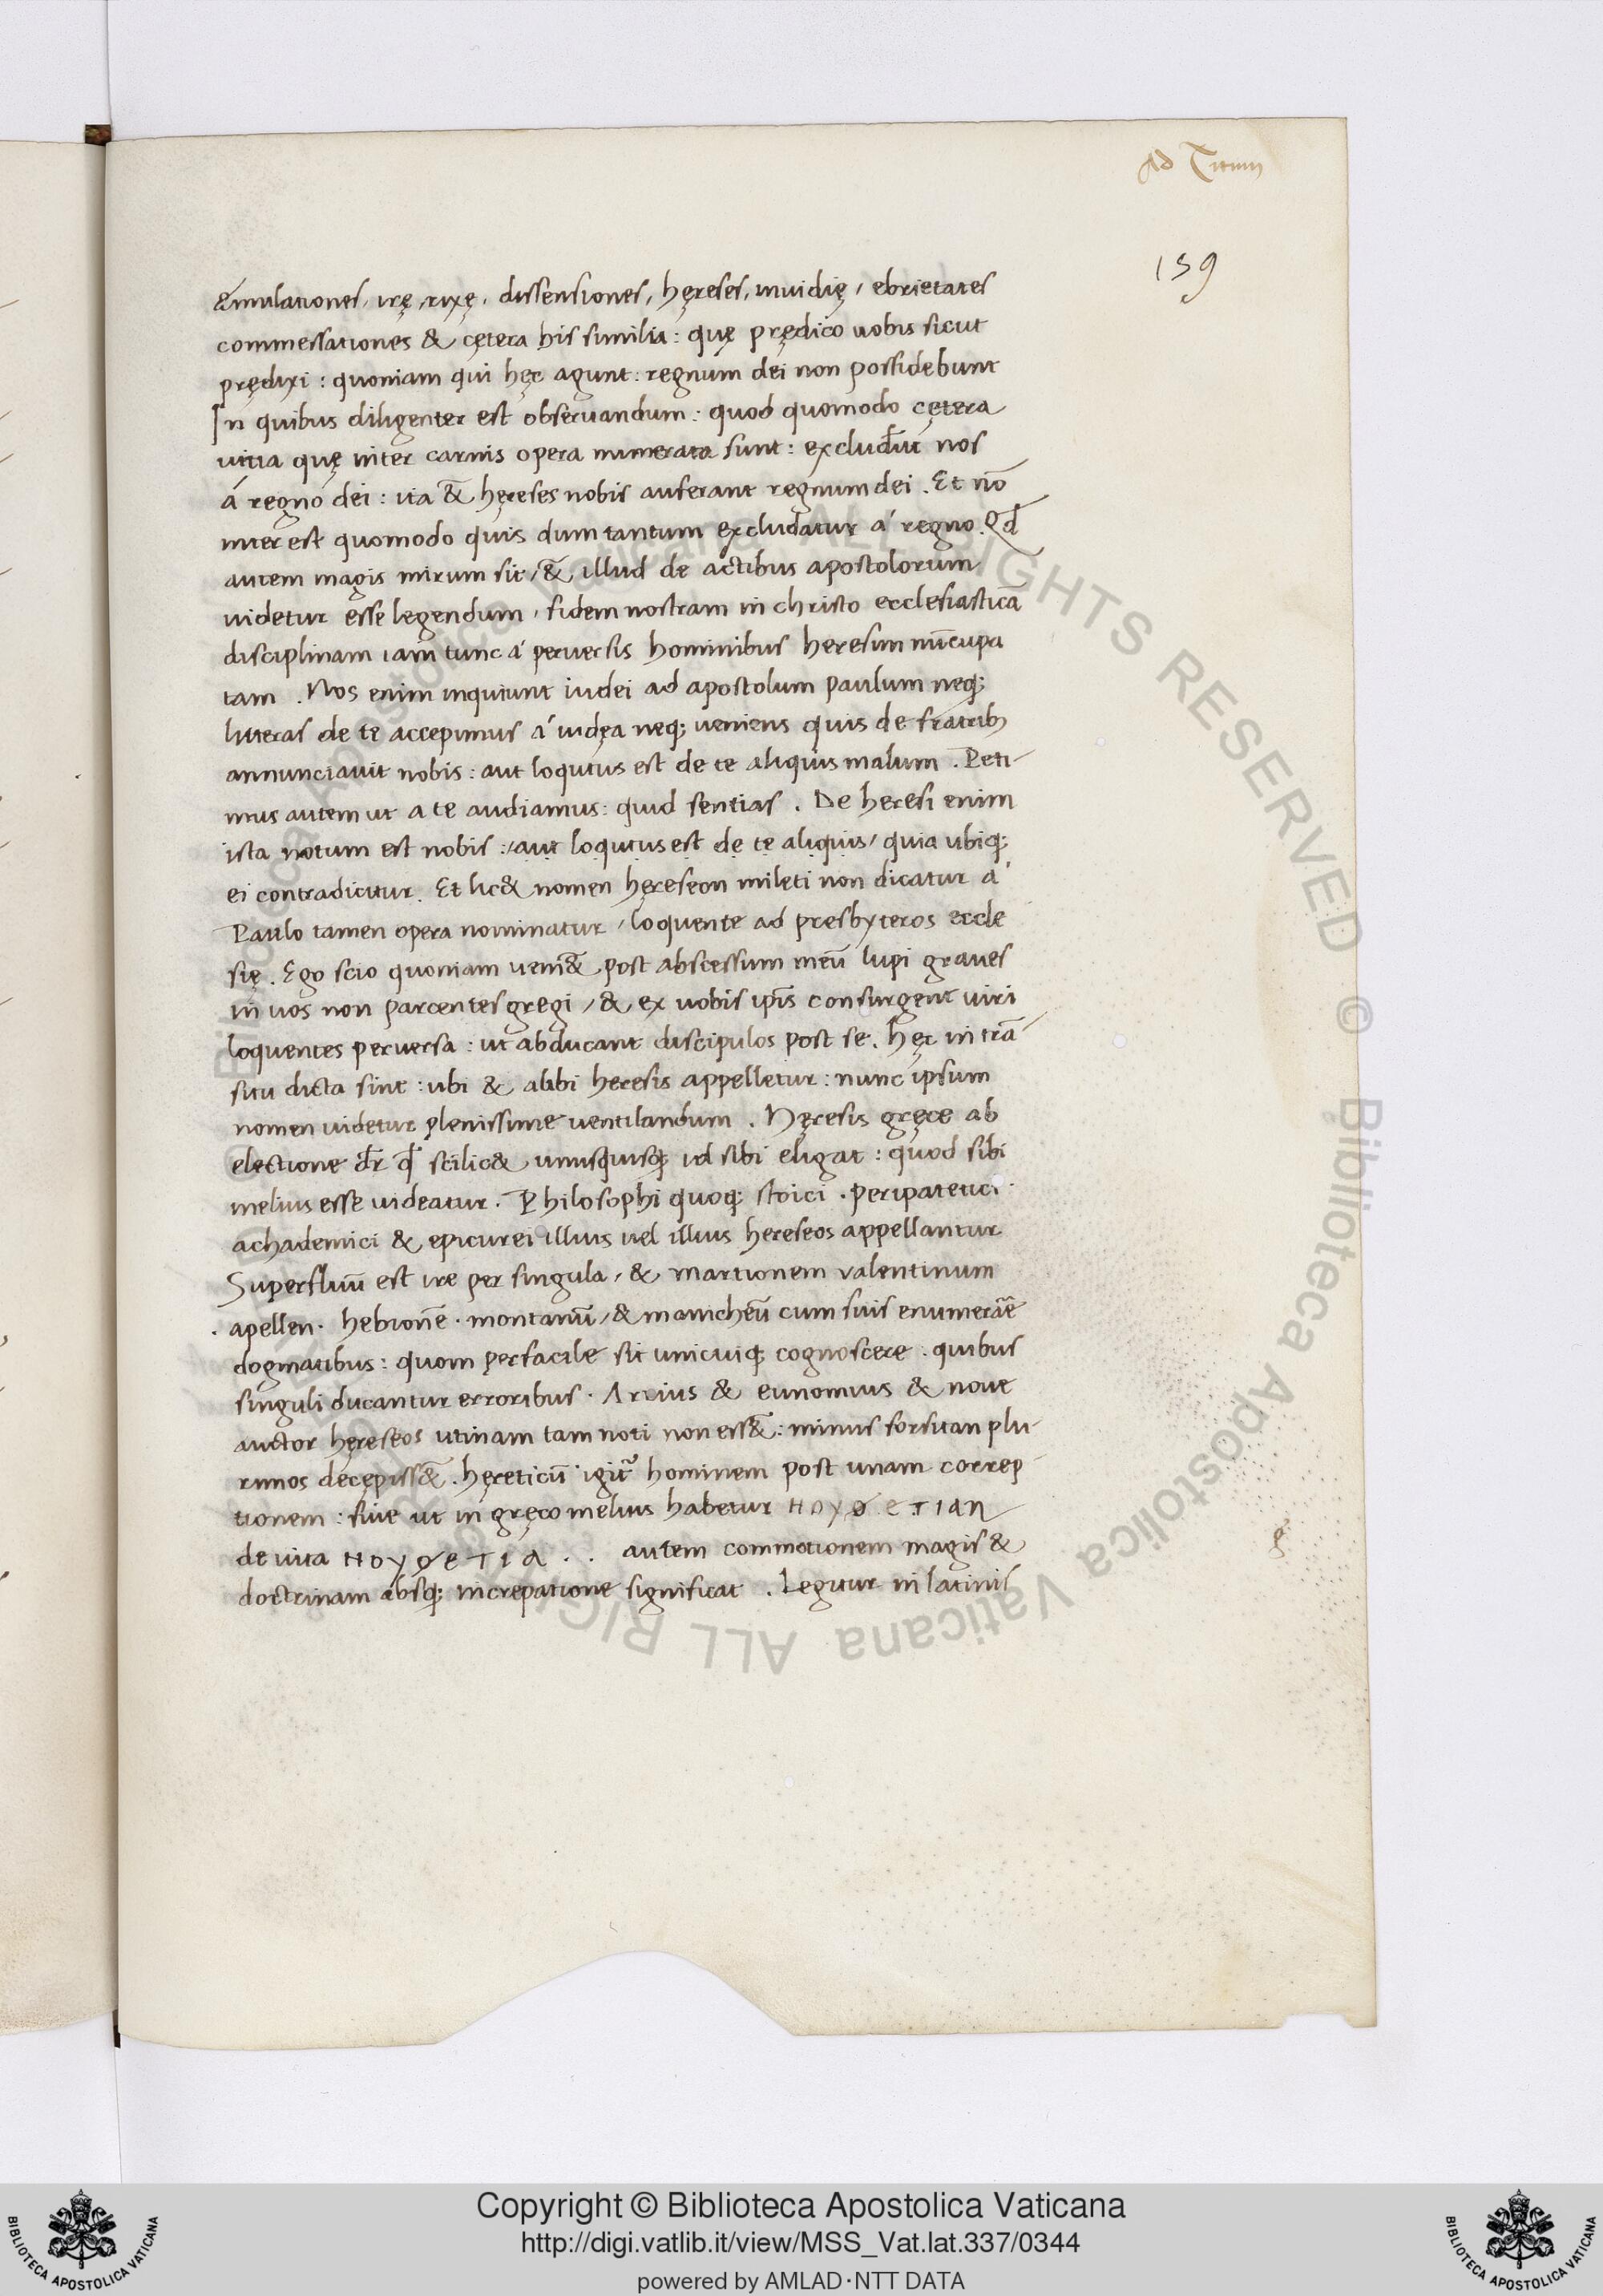 Ad Titum
159
ęmulationes, irę, rixę, dissensiones, hęreses, inuidię, ebrietates
commessationes & cętera his similia: quę prędico uobis sicut
prędixi: quoniam qui hęc agunt: regnum dei non possidebunt
In quibus diligenter est obseruandum: quod quomodo cętera
uitia quę inter carnis opera numerata sunt: excludūt nos
á regno dei: ita & hęreses nobis auferant regnum dei. Et nō
interest quomodo quis dum tantum excludatur á regno. Qđ
autem magis mirum sit, & illud de actibus apostolorum
uidetur esse legendum, fidem nostram in christo ecclesiasticā
disciplinam iam tunc á peruersis hominibus heresim nūcupa
tam. Nos enim inquiunt iudei ad apostolum paulum neq;
litteras de te accepimus á iudęa neq; ueniens quis de fratrib;
annunciauit nobis: aut loqutus est de te aliquis malum. Peti-
mus autem ut a te audiamus: quid sentias. De heresi enim
ista notum est nobis: aut loqutus est de te aliquis, quia ubiq;
ei contradicitur. Et lic& nomen hęreseon mileti non dicatur á
Paulo tamen opera nominatur, loquente ad presbyteros eccle
się. Ego scio quoniam ueni& post abscessum meū lupi graues
in uos non parcentes gregi, & ex uobis ip̄is consurgent uiri
loquentes peruersa: ut abducant discipulos post se. hęc in trā
situ dicta sint: ubi & alibi heresis appelletur: nunc ipsum
nomen uidetur plenissime uentilandum. Hęresis gręce ab
electione dr̄ qđ scilic& unusquisq; id sibi eligat: quod sibi
melius esse uideatur. Philosophi quoq; stoici. peripatetici.
achademici & epicurei illius uel illius hereseos appellantur
Superfluū est ire per singula, & martionem valentinum
apellen. hebionē. montanū, & manicheū cum suis enumerāe
dogmatibus: quom perfacile sit unicuiq; cognoscere. quibus
singuli ducantur erroribus. Arrius & eunomius & noue
auctor hęreseos utinam tam noti non ess&: minus forsitan plu-
rimos decępiss&. hęreticū igit̄ hominem post unam correp
tionem: siue ut in gręco melius habetur ΝΟΥΘΕΤΙΑΝ
de uita ΝΟΥΘΕΤΙΑ. . autem commotionem magis &
doctrinam absq; increpatione significat. Legitur in latinis
Copyright © Biblioteca Apostolica Vaticana
http://digi.vatlib.it/view/MSS_Vat.lat.337/0344
powered by AMLAD·NTT DATA
BIBLIOTECA APOSTOLICA VATICANA
BIBLIOTECA APOSTOLICA VATICANA